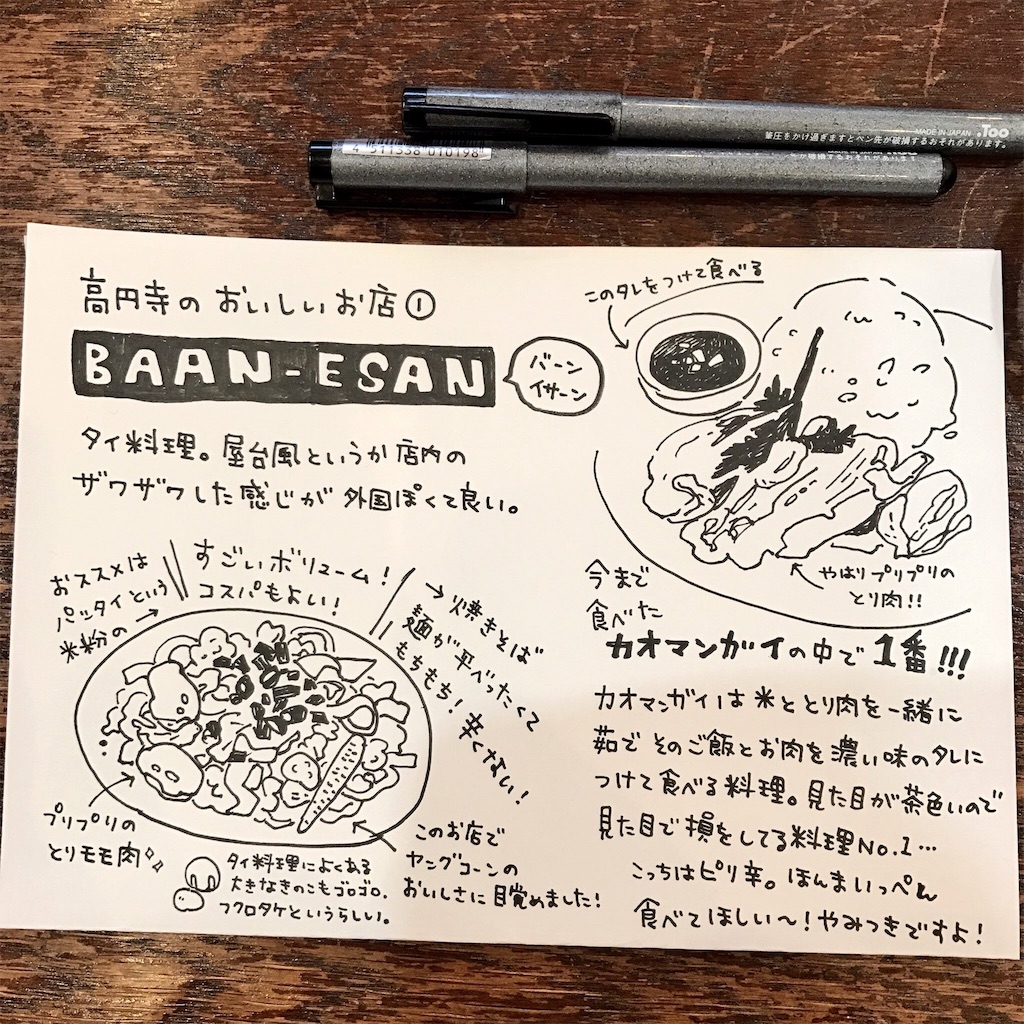 MADE IN JAPAN .Too
筆圧をかけ過ぎますとペン先が破損するおそれがあります。
4 511338 010198
高円寺のおいしいお店①
BAAN-ESAN
バーン
イサーン
タイ料理。屋台風というか店内の
ザワザワした感じが外国ぽくて良い。
おススメは
パッタイという
米粉の→
すごいボリューム!
コスパもよい!
→焼きそば
麺が平べったくて
もちもち!辛くない!
プリプリの
とりモモ肉
タイ料理によくある
大きなきのこもゴロゴロ.
フクロタケというらしい。
このお店で
ヤングコーンの
おいしさに目覚めました!
このタレをつけて食べる
やはりプリプリの
とり肉!!
今まで
食べた
カオマンガイの中で1番!!!
カオマンガイは米ととり肉を一緒に
茹でそのご飯とお肉を濃い味のタレに
つけて食べる料理。見た目が茶色いので
見た目で損をしてる料理No.1…
こっちはピリ辛。ほんまいっぺん
食べてほしい〜!やみつきですよ!